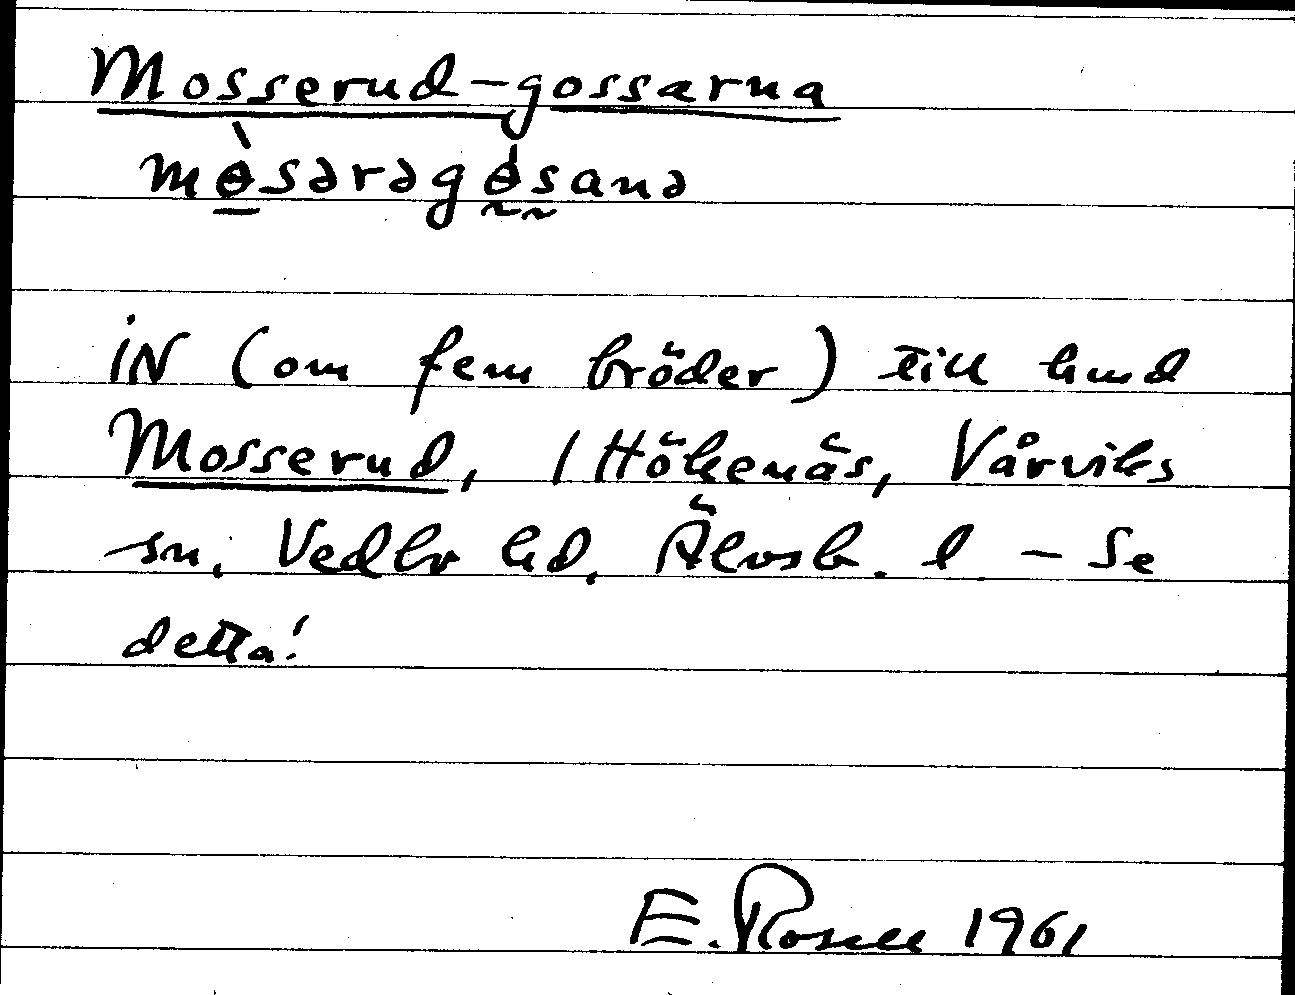 Mosserud-gossarna
mɵ̀sərəgɵ́sanə
iN (om fem bröder) till hmd
Mosserud, 1 Hökenäs, Vårviks
sn. Vedbo hd. Älvsb. l - Se
detta!
E. Rosell 1961